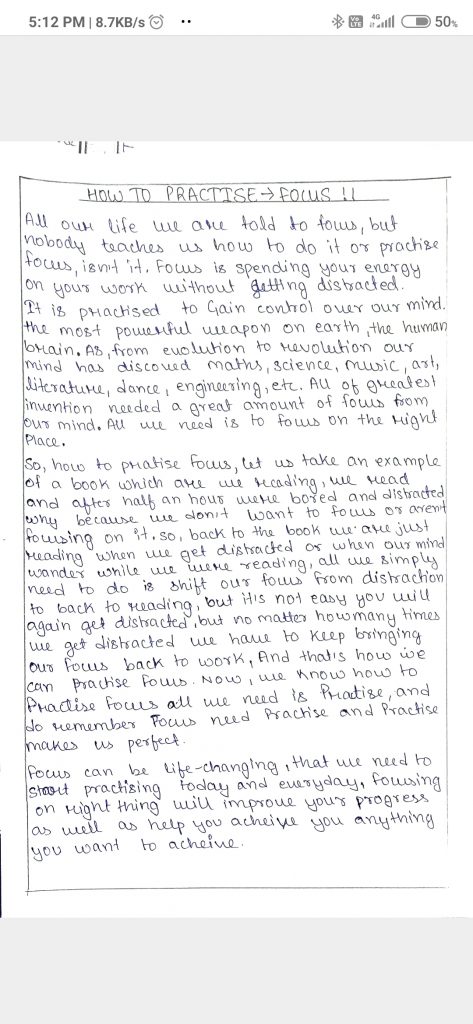 5:12 PM | 8.7KB/s
4G
Vo
LTE
50%
HOW TO PRACTISE → FOCUS !!
All our life we are told to focus, but
nobody teaches us how to do it or practise
focus, isn't it. Focus is spending your energy
on your work without getting distracted.
It is practised to Gain control over our mind.
the most powerful weapon on earth, the human
brain. As, from evolution to revolution our
mind has discoved maths, science, music, art,
literature, dance, engineering, etc. All of greatest
invention needed a great amount of focus from
our mind. All we need is to focus on the right
Place.
So, how to pratise focus, let us take an example
of a book which are we reading, we read
and after half an hour were bored and distracted
why because we don't want to focus or arent
focusing on it. so, back to the book we are just
reading when we get distracted or when our mind
wander while we were reading, all we simply
need to do is shift our focus from distraction
to back to reading, but itis not easy you will
again get distracted, but no matter howmany times
we get distracted we have to keep bringing
our focus back to work, And that's how we
can practise focus. Now, we know how to
Practise focus all we need is Pratise, and
do remember Focus need Practise and Practise
makes us perfect.
focus can be life-changing, that we need to
start practising today and everyday, focusing
on right thing will improve your progress
as well as help you acheive you anything
you want to acheive.